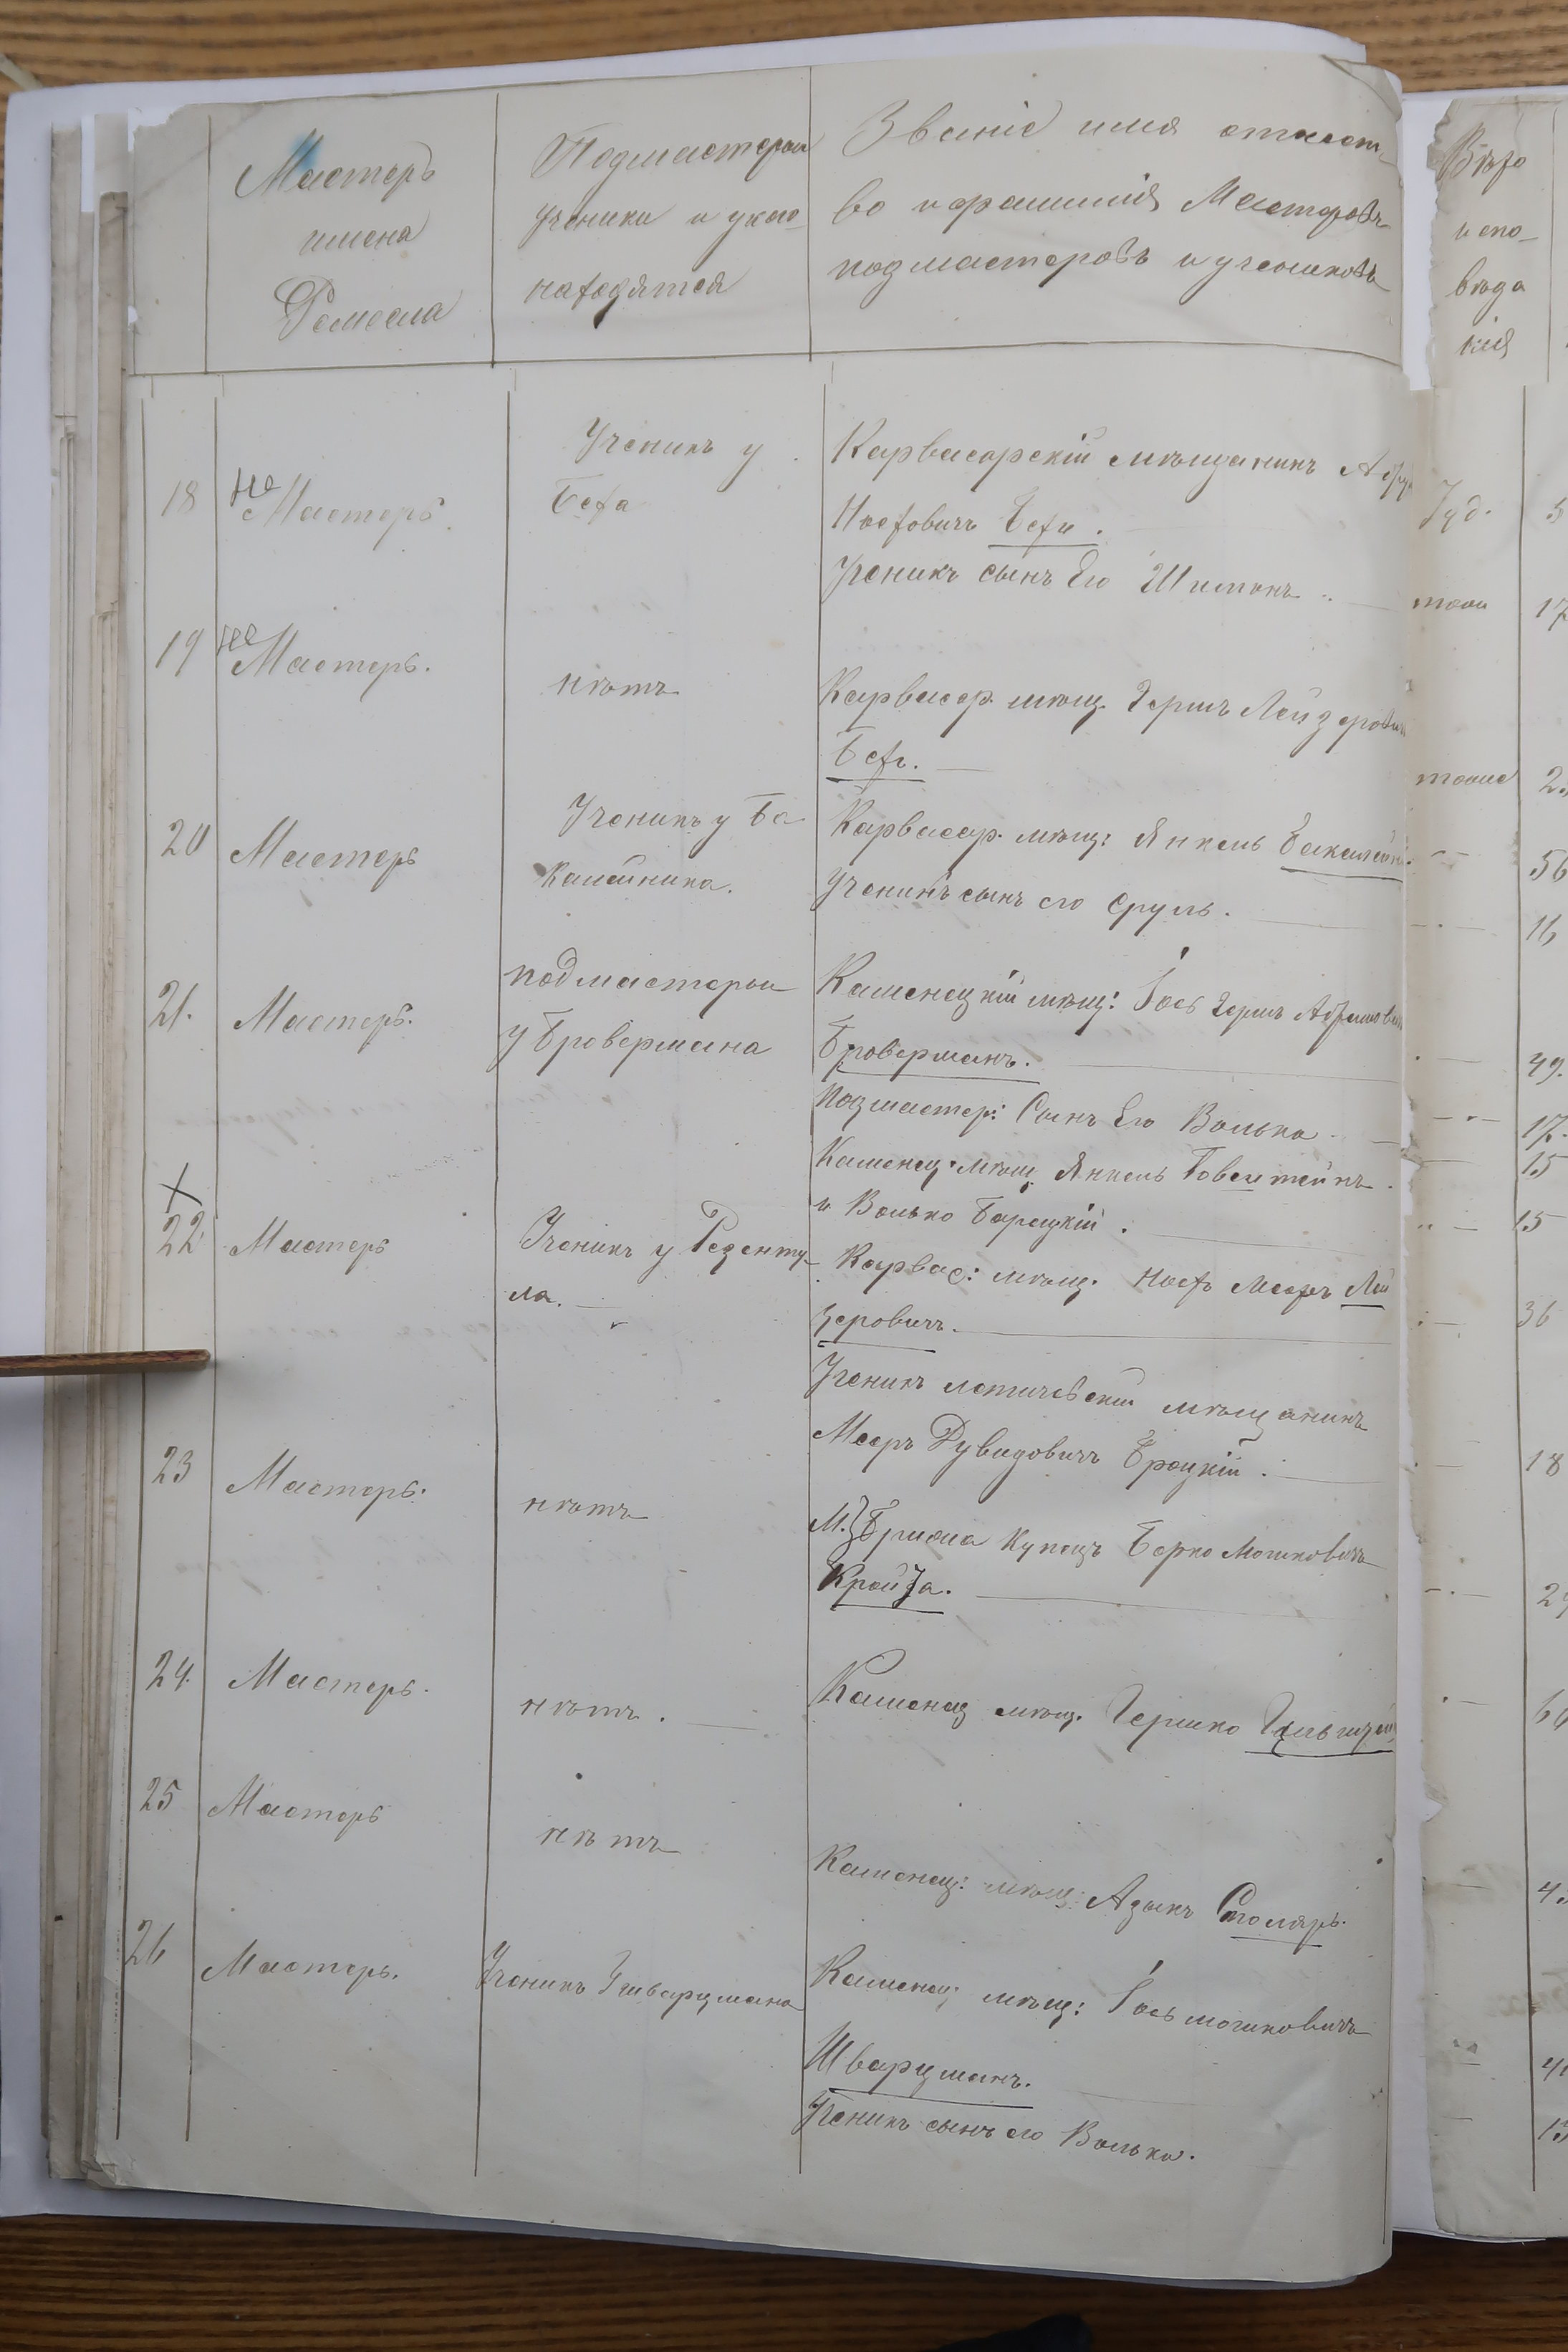 Мастеръ
имена
Ремесла
Подмастерья
ученики и у кого
находятся
Званіе имя отчест-
во и фамилія Мастеровъ
подмастеровъ и учениковъ
Вѣро
и спо-
вѣда
нія
18
не
Мастеръ.
Ученикъ у
Беха
Карвасарскій мѣщанинъ
Іуд.
5
Иосфовичъ Бехъ.
Ученикъ сынъ Его Шимонъ
тоже
17
19
не
Мастеръ.
нѣтъ
Карвасар. мѣщ. Гершъ Лейзеровичъ
Бехъ.
тоже
20
Мастеръ
Ученикъ у Ба-
калейника.
Карвасар. мѣщ: Янкель Бакалейни
56
Ученикъ сынъ его Сруль.
16
21.
Мастеръ.
подмастерья
у Бровермана
Каменецкій мѣщ: Іось Гершъ Абрамович
Броверманъ.
49.
Подмастер: Сынъ Его Волько
17.
Каменец. мѣщ. Янкель
15
и Волько Барацкій.
15
22
Мастеръ
Ученикъ у
ла.
Карвас: мѣщ. Иосфъ Мееръ Лей
зеровичъ.
36
Ученикъ летичевскій мѣщанинъ
Мееръ Дувидовичъ Броцкій.
18
23
Мастеръ.
нѣтъ
Купецъ Берко Мошковичъ
24.
Мастеръ.
нѣтъ.
Каменец мѣщ. Гершко
25
Мастеръ
нѣтъ
Каменец: мѣщ: Азыкъ Столяръ.
26
Мастеръ.
Ученикъ Шварцмана
Каменец: мѣщ: Іось Мошковичъ
Шварцманъ.
Ученикъ сынъ его Волько.